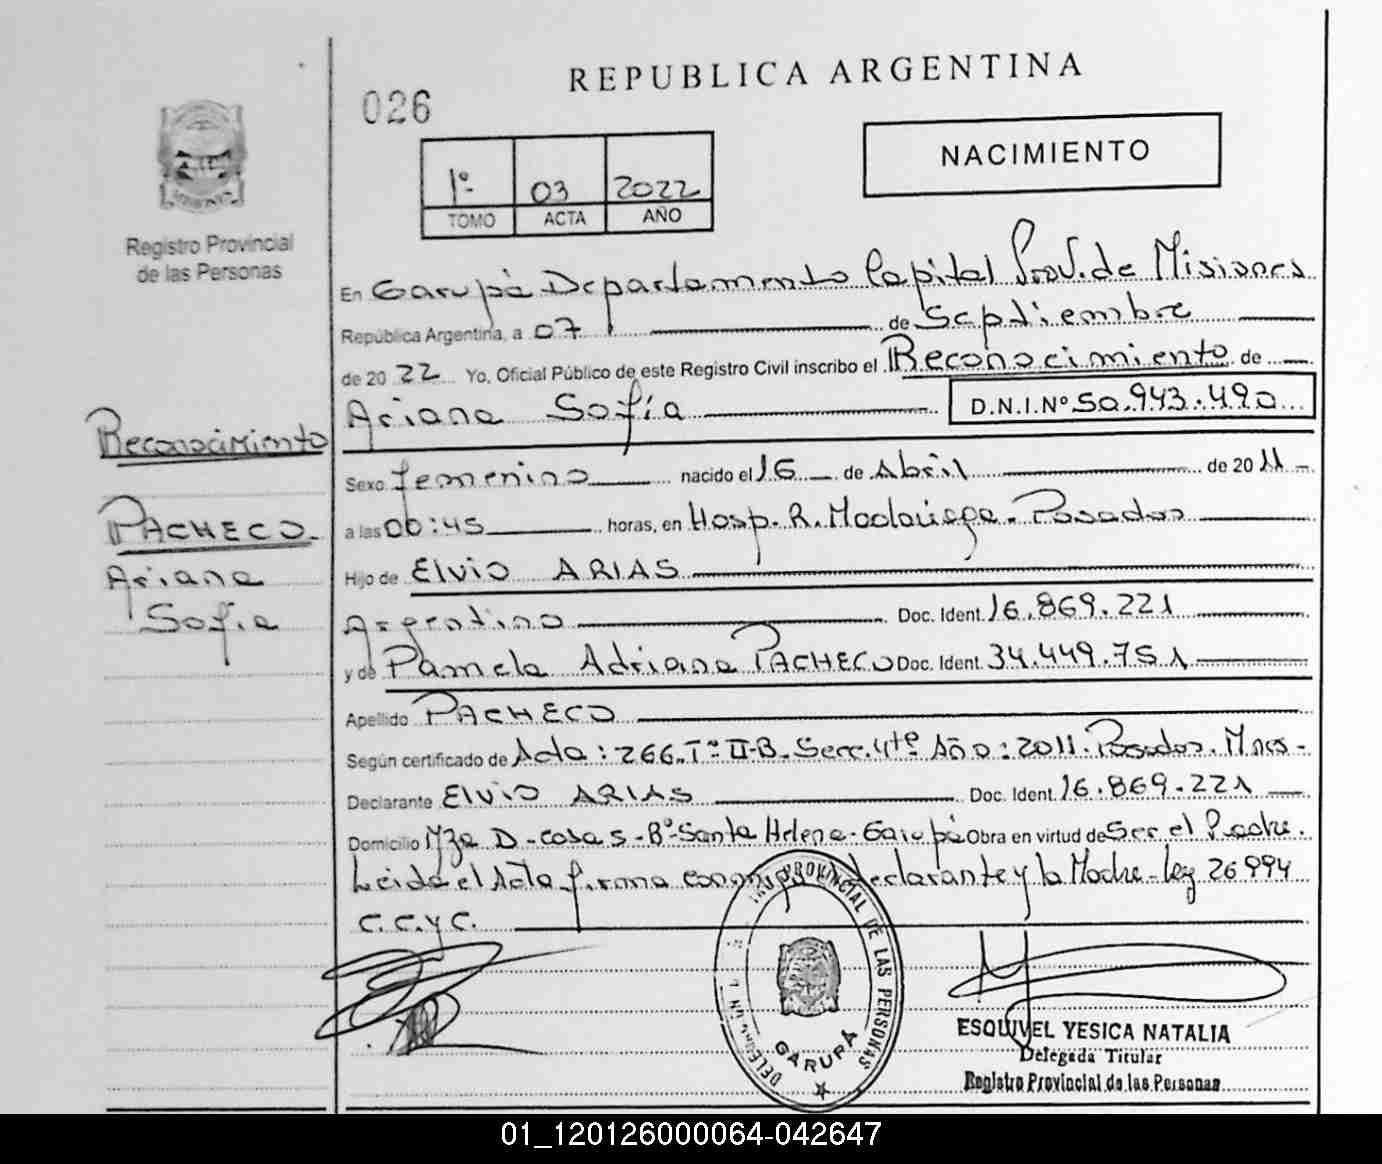 REPUBLICA ARGENTINA
026
NACIMIENTO
1º 03 2022
TOMO ACTA AÑO
Registro Provincial
de las Personas
En Garupá Departamento Capital Prov. de Misiones
República Argentina, a 07 de Septiembre
de 2022 Yo, Oficial Público de este Registro Civil inscribo el Reconocimiento de
Ariana Sofía D.N.I.Nº 50.943.490
Reconocimiento
Sexo femenino nacido el 16 de Abril de 2011
PACHECO
Ariana
Sofía
a las 00:45 horas, en Hosp. R. Madariaga. Posadas
Hijo de Elvio ARIAS
Argentino Doc. Ident. 16.869.221
y de Pamela Adriana PACHECO Doc. Ident. 34.449.751
Apellido PACHECO
Según certificado de Acta: 266. Tº II-B. Secc. 4te Año: 2011. Posadas. Mnes-
Declarante Elvio ARIAS Doc. Ident. 16.869.221
Domicilio Mza D - casa 5 - Bº Santa Helena - Garupá Obra en virtud de Ser el Padre.
Leida el Acta firma declarante y la Madre - Ley 26994
C.C.y C.
PROVINCIAL DE LAS PERSONAS
GARUPÁ
ESQUIVEL YESICA NATALIA
Delegada Titular
Registro Provincial de las Personas
01_120126000064-042647